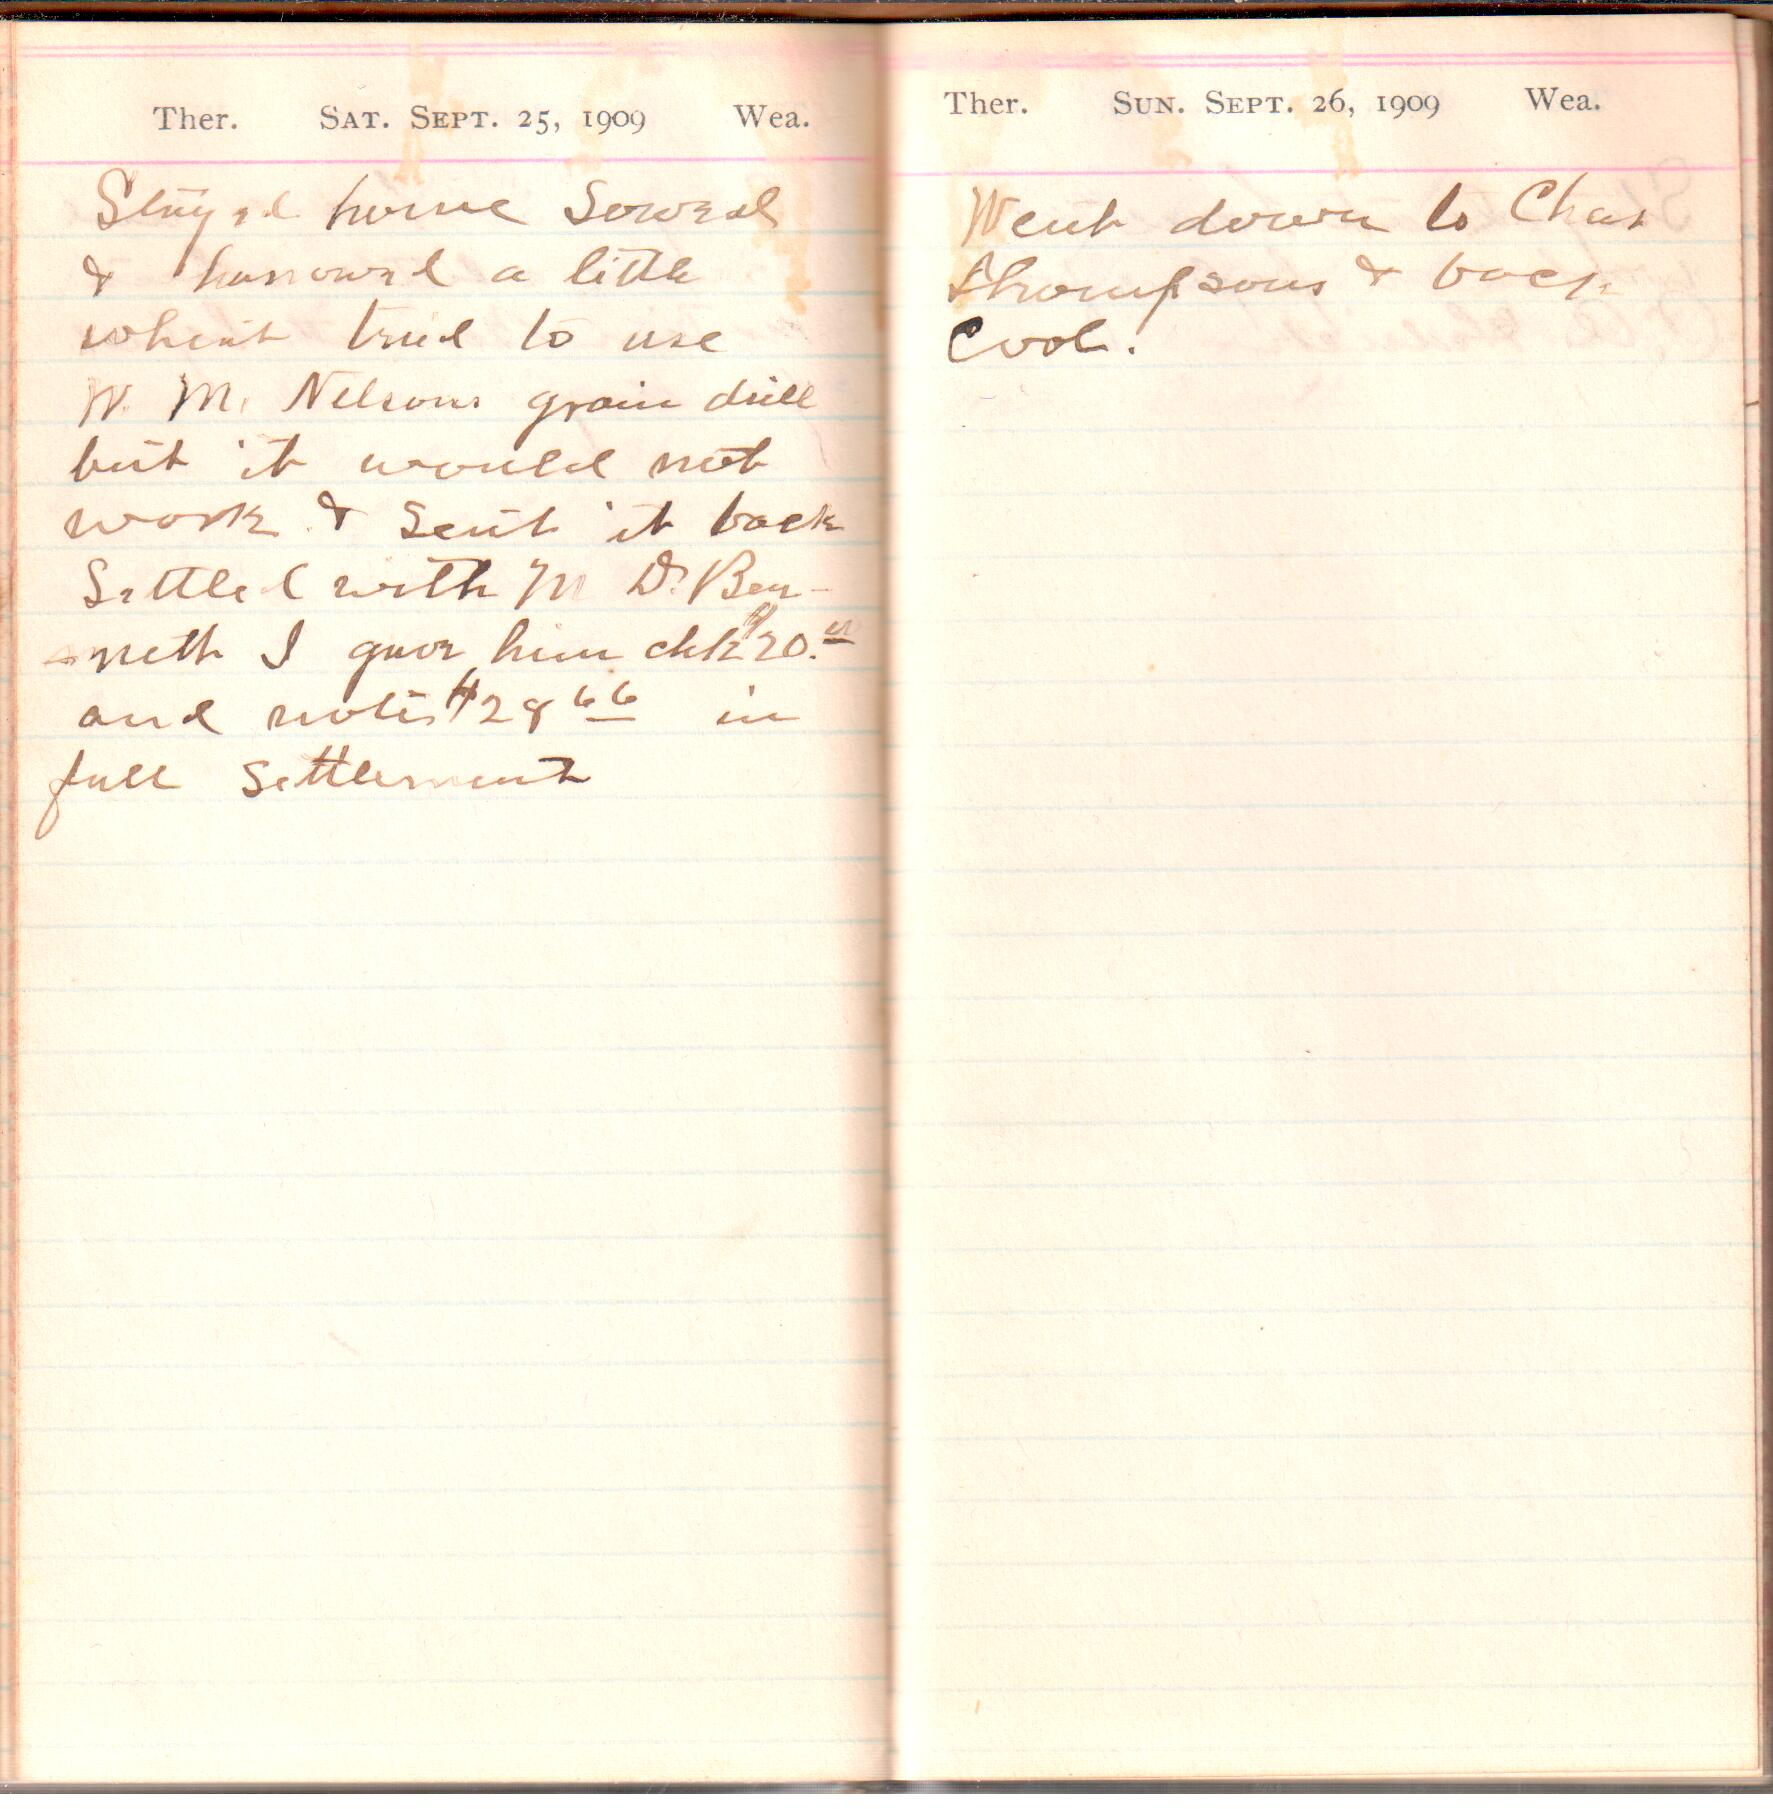 Ther. SAT. SEPT. 25, 1909 Wea.
Stayed home Sowed
& harrowed a little
wheat tried to use
W. M. Nelsons grain drill
but it would not
work & sent it back
Settled with M D. Ben-
neth I gave him chk $20.00
and note $28 66 in
full settlement
Ther. SUN. SEPT. 26, 1909 Wea.
Went down to Chas
Thompsons & back
Cool.